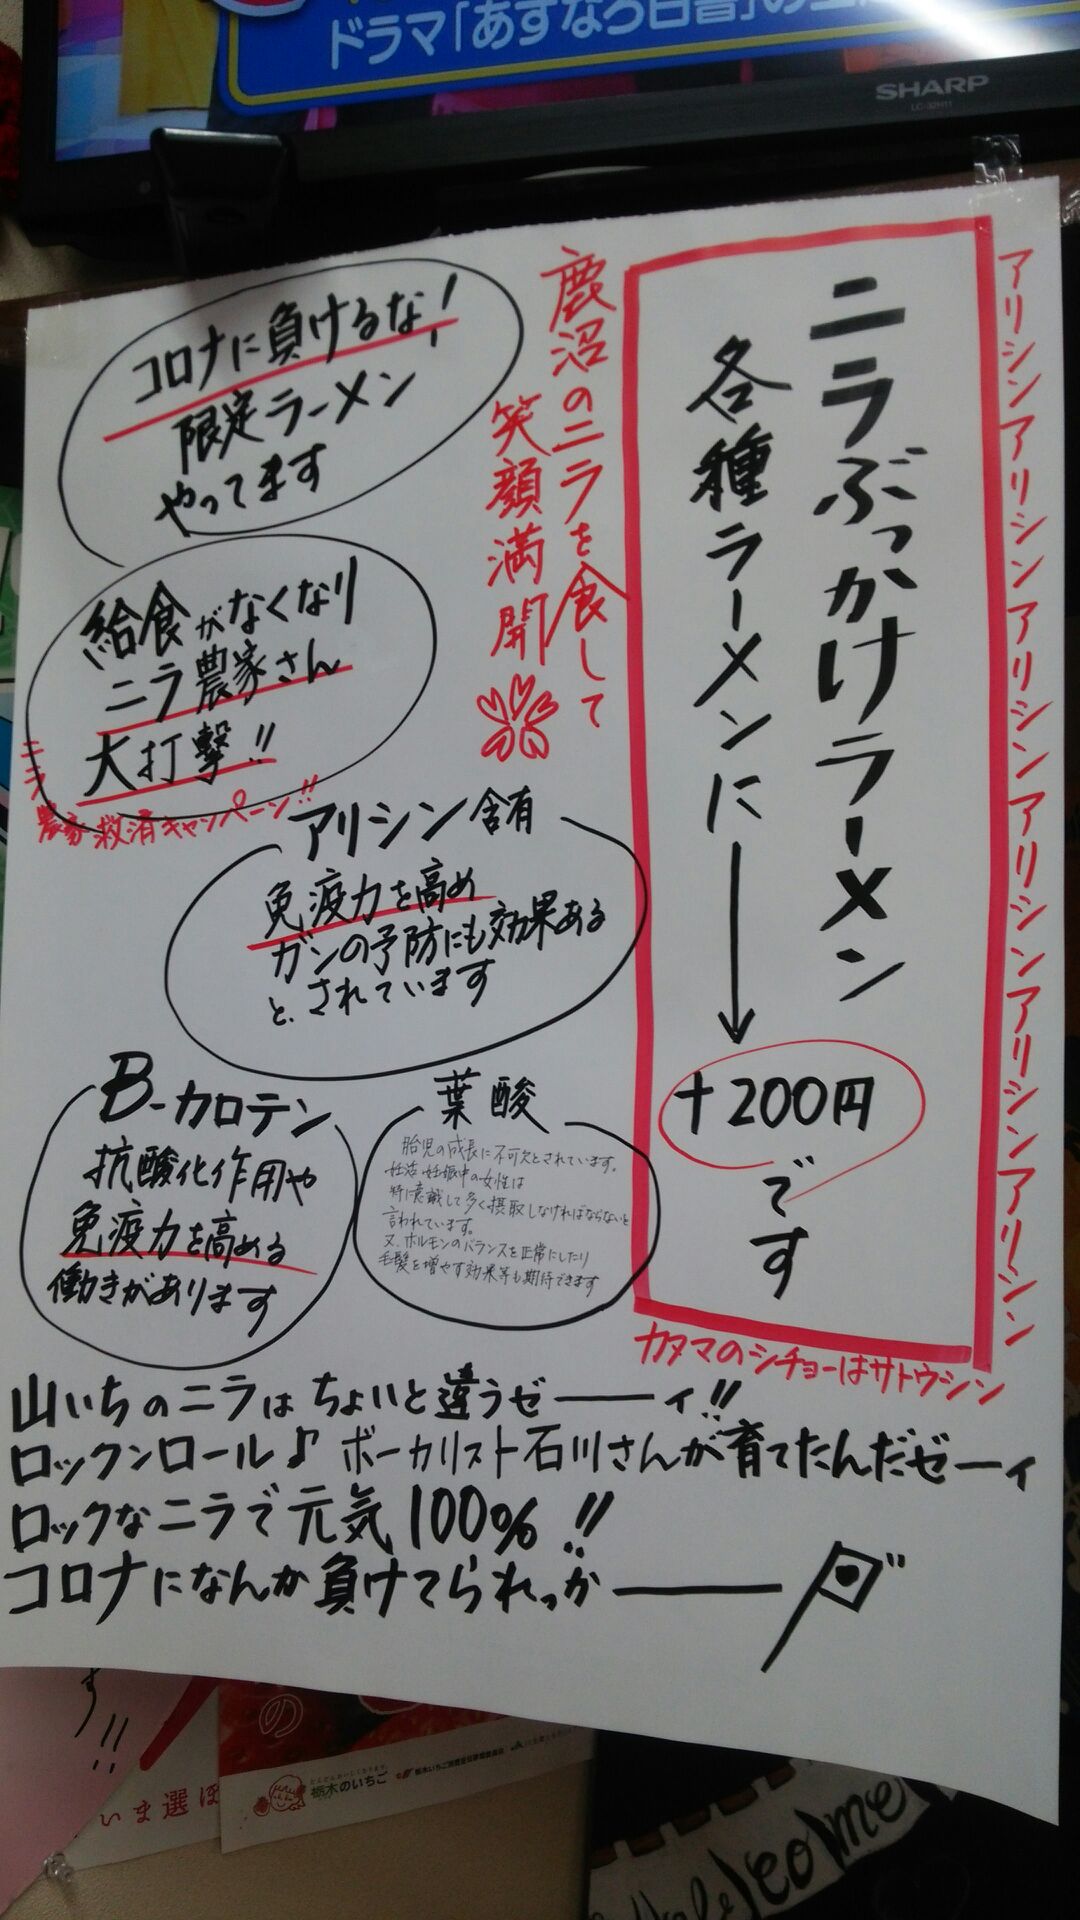 ドラマ「あすなろ白書」の
SHARP
LC-32H11
アリシンアリシンアリシンアリシンアリシンアリシンアリシンアリシンアリシン
ニラぶっかけラーメン
各種ラーメンに
+200円
です
カヌマのシチョーはサトウシン
鹿沼のニラを食して
笑顔満開
コロナに負けるな!
限定ラーメン
やってます
給食がなくなり
ニラ農家さん
大打撃!!
ニラ農家救済キャンペーン!!
アリシン含有
免疫力を高め
ガンの予防にも効果ある
と、されています
B-カロテン
抗酸化作用や
免疫力を高める
働きがあります
葉酸
胎児の成長に不可欠とされています。
妊活・妊娠中の女性は
特に意識して多く摂取しなければならないと
言われています。
又、ホルモンのバランスを正常にしたり
毛髪を増やす効果等も期待できます
山いちのニラはちょいと違うゼーーィ!!
ロックンロール♪ボーカリスト石川さんが育てたんだゼーィ
ロックなニラで元気100%!!
コロナになんか負けてられっかーーダ
す!!
いま選ば
の
栃木のいちご
Welcome